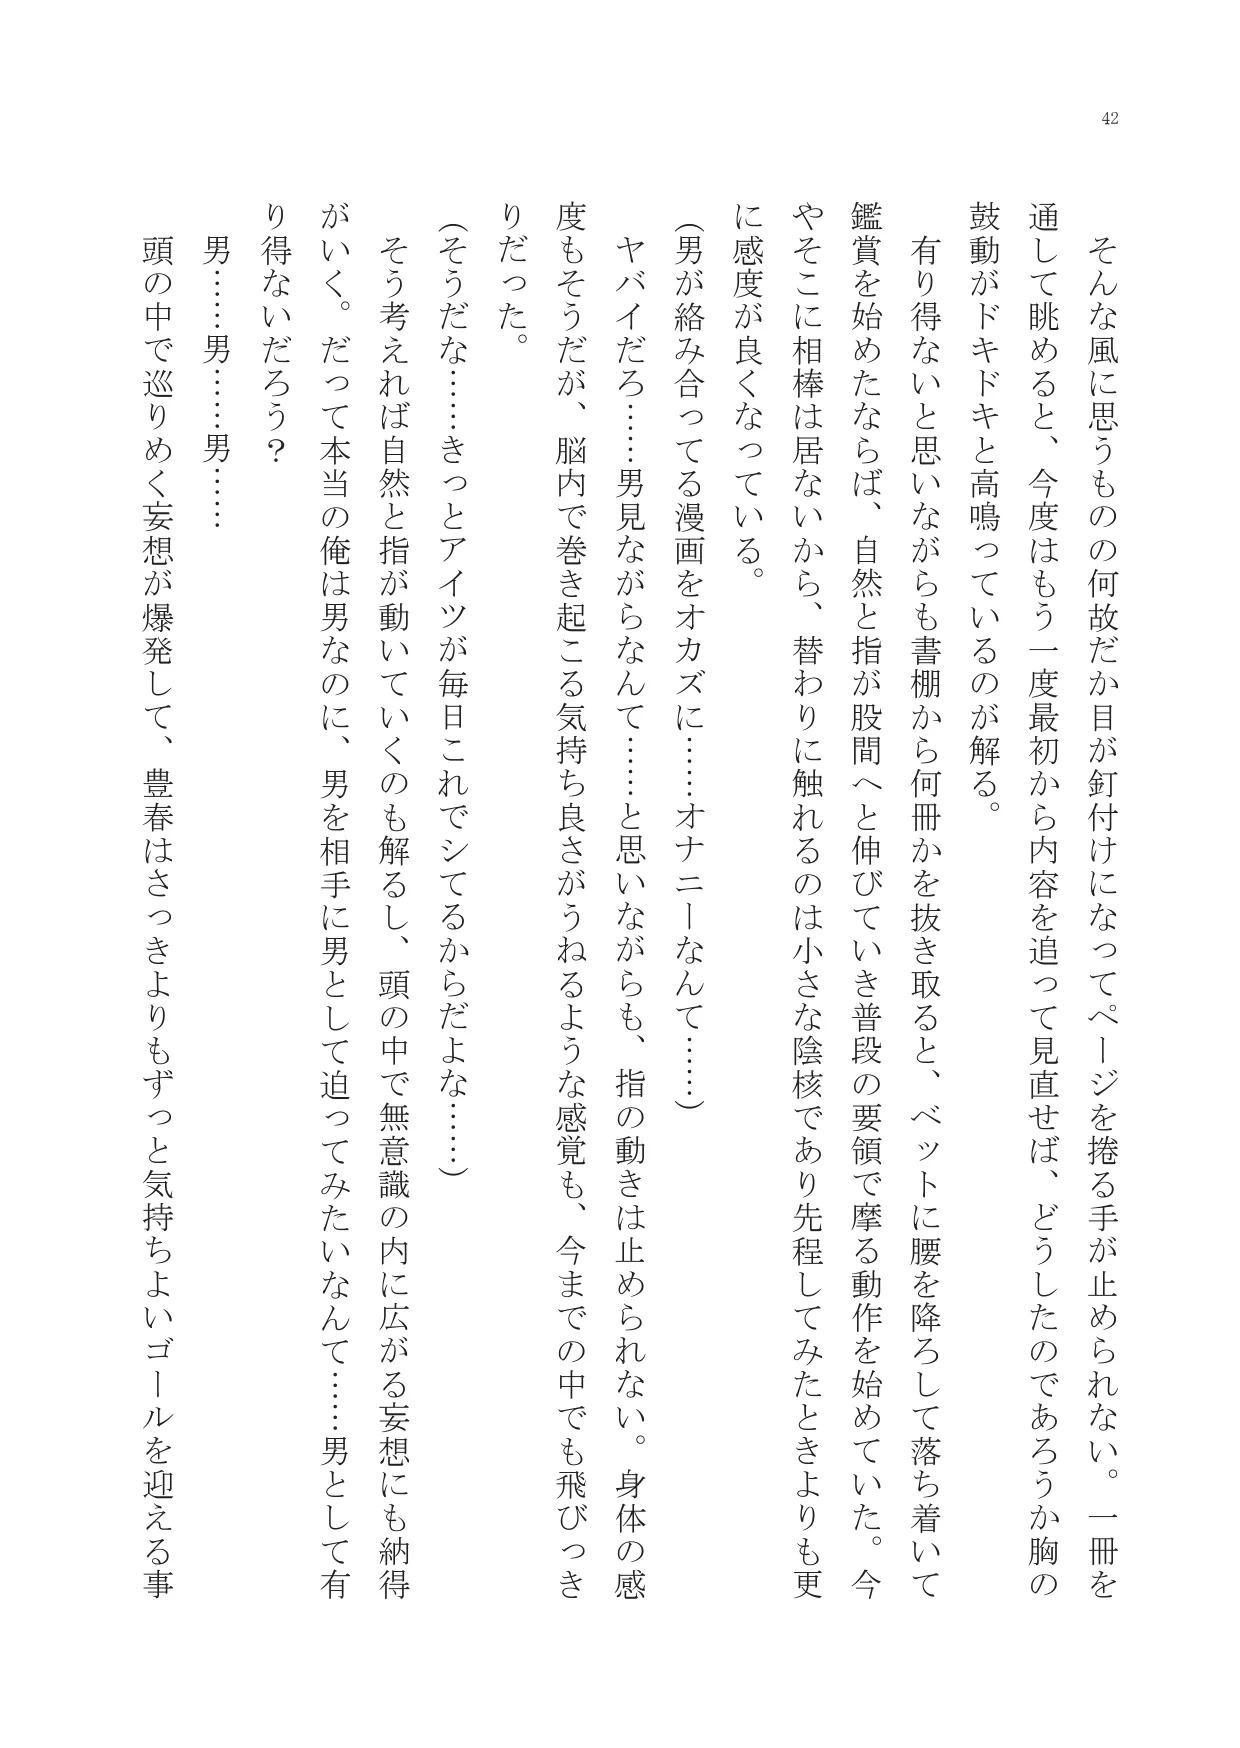 42
　そんな風に思うものの何故だか目が釘付けになってページを捲る手が止められない。一冊を
通して眺めると、今度はもう一度最初から内容を追って見直せば、どうしたのであろうか胸の
鼓動がドキドキと高鳴っているのが解る。
　有り得ないと思いながらも書棚から何冊かを抜き取ると、ベットに腰を降ろして落ち着いて
鑑賞を始めたならば、自然と指が股間へと伸びていき普段の要領で摩る動作を始めていた。今
やそこに相棒は居ないから、替わりに触れるのは小さな陰核であり先程してみたときよりも更
に感度が良くなっている。
（男が絡み合ってる漫画をオカズに……オナニーなんて……）
　ヤバイだろ……男見ながらなんて……と思いながらも、指の動きは止められない。身体の感
度もそうだが、脳内で巻き起こる気持ち良さがうねるような感覚も、今までの中でも飛びっき
りだった。
（そうだな……きっとアイツが毎日これでシてるからだよな……）
　そう考えれば自然と指が動いていくのも解るし、頭の中で無意識の内に広がる妄想にも納得
がいく。だって本当の俺は男なのに、男を相手に男として迫ってみたいなんて……男として有
り得ないだろう？
　男……男……男……
　頭の中で巡りめく妄想が爆発して、豊春はさっきよりもずっと気持ちよいゴールを迎える事